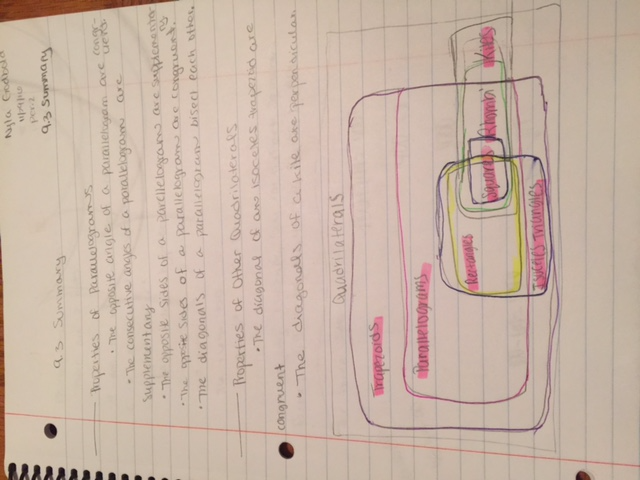 9.3 Summary
9.3 Summary
Properties of Parallelograms
• The opposite angle of a parallelogram are
• The consecutive angles of a parallelogram are
supplementary
• The opposite sides of a parallelogram are supplementary
• The opposite sides of a parallelogram are congruent.
• The diagonals of a parallelogram bisect each other.
Properties Of Other Quadrilaterals
• The diagonal of an isoceles trapezoid are
congruent
• The diagonals of a kite are perpendicular.
Quadrilaterals
Trapezoids
Parallelograms
Rectangles
Squares
Rhombi
Kites
Triangles